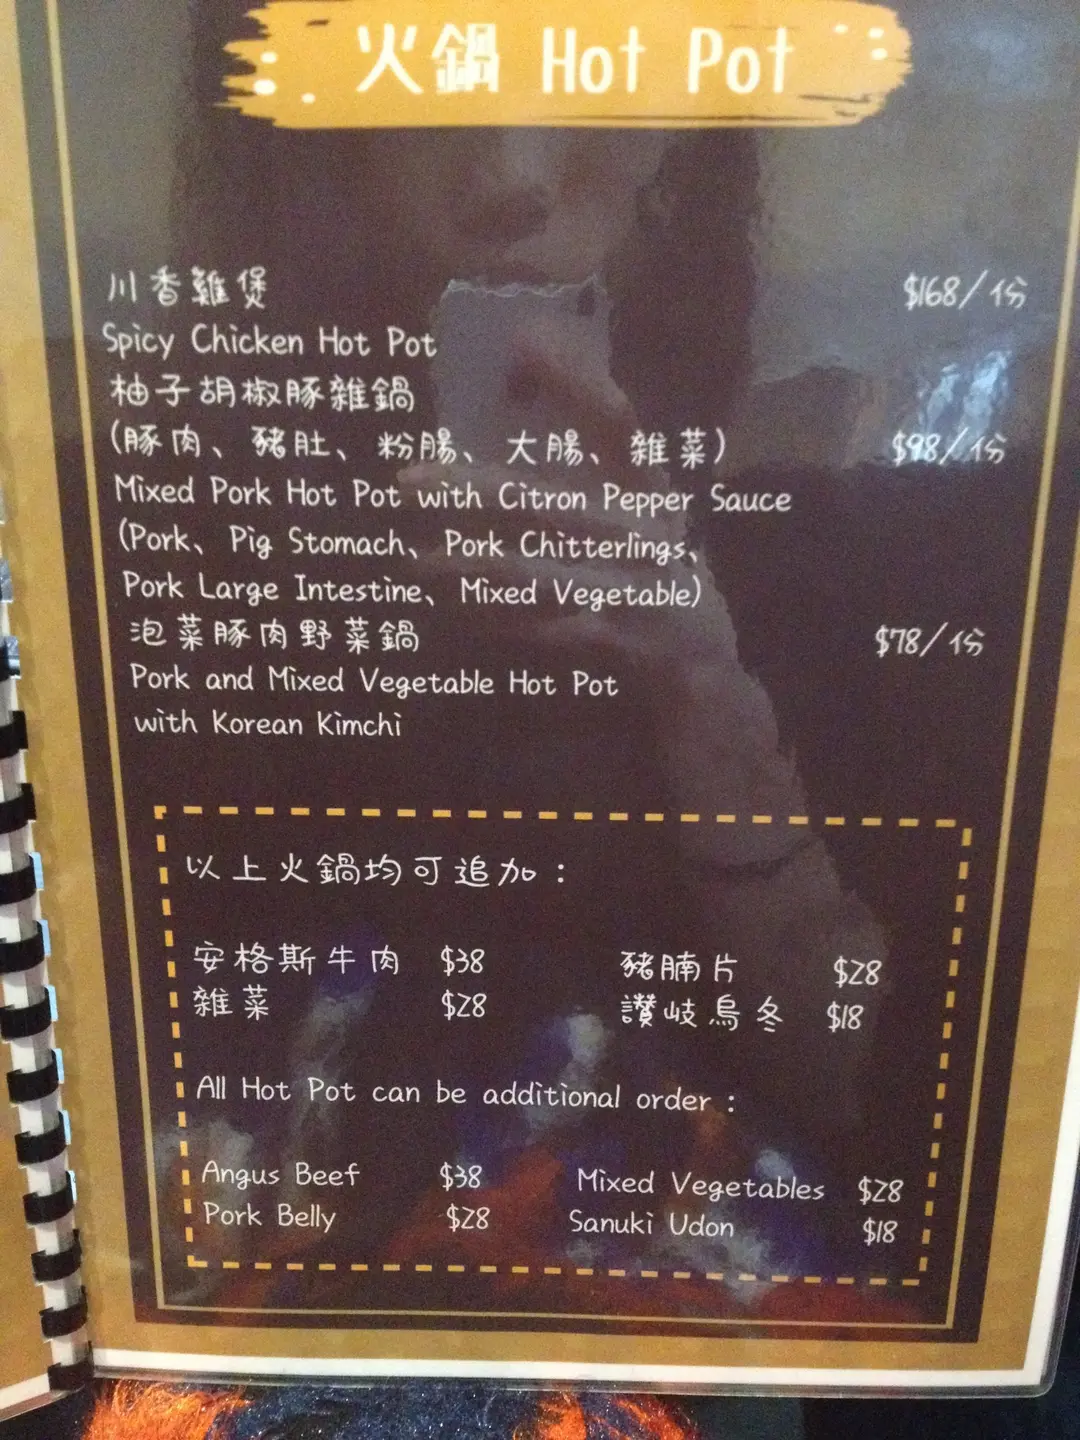 火鍋 Hot Pot
川香雞煲 $168/份
Spicy Chicken Hot Pot
柚子胡椒豚雜鍋
(豚肉、豬肚、粉腸、大腸、雜菜) $98/份
Mixed Pork Hot Pot with Citron Pepper Sauce
(Pork、Pig Stomach、Pork Chitterlings、
Pork Large Intestine、Mixed Vegetable)
泡菜豚肉野菜鍋 $78/份
Pork and Mixed Vegetable Hot Pot
with Korean Kimchi
以上火鍋均可追加：
安格斯牛肉 $38 豬腩片 $28
雜菜 $28 讚岐烏冬 $18
All Hot Pot can be additional order :
Angus Beef $38 Mixed Vegetables $28
Pork Belly $28 Sanuki Udon $18